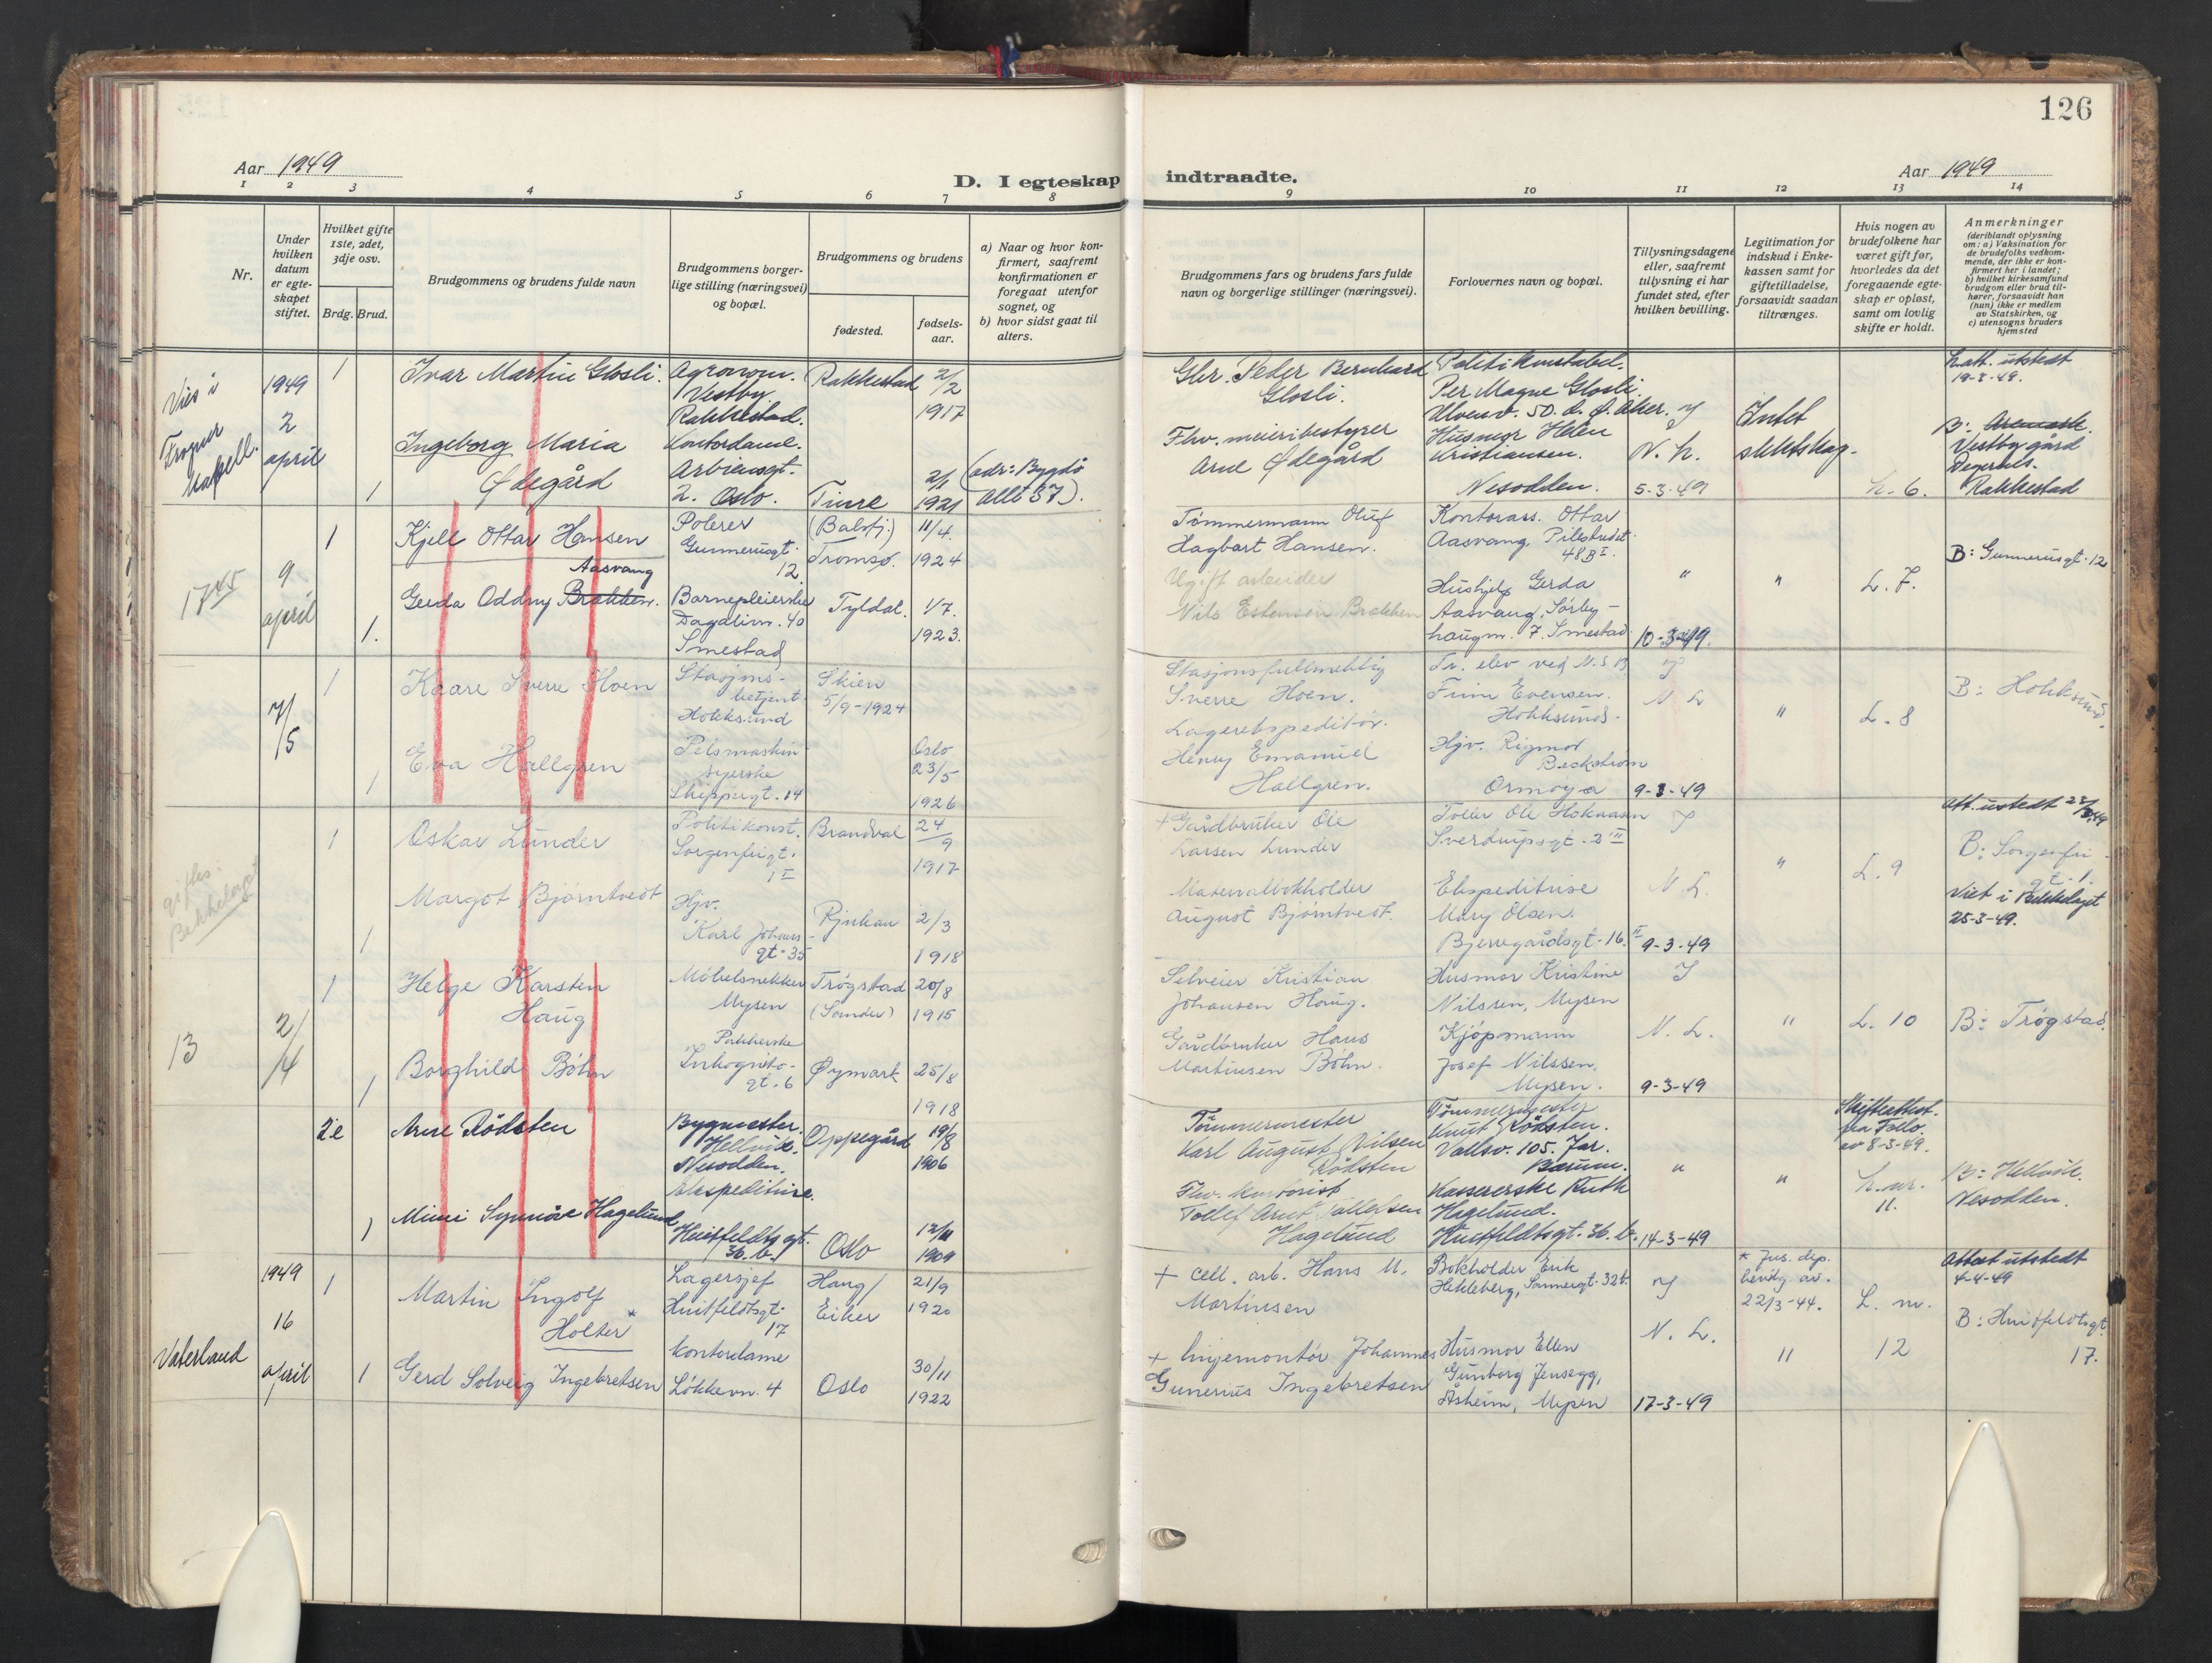 126
Aar 1949
D. I egteskap indtraadte.
Aar 1949
1 2 3 4 5 6 7 8 9 10 11 12 13 14
Nr.
Under hvilken datum er egte-skapet stiftet.
Hvilket gifte 1ste, 2det, 3dje osv.
Brdg. Brud.
Brudgommens og brudens fulde navn
Brudgommens borger-lige stilling (næringsvei) og bopæl.
Brudgommens og brudens
fødested.
fødsels-aar.
a) Naar og hvor kon-firmert, saafremt konfirmationen er foregaat utenfor sognet, og
b) hvor sidst gaat til alters.
Brudgommens fars og brudens fars fulde navn og borgerlige stillinger (næringsvei).
Forlovernes navn og bopæl.
Tillysningsdagene eller, saafremt tillysning ei har fundet sted, efter hvilken bevilling.
Legitimation for indskud i Enke-kassen samt for giftetilladelse, forsaavidt saadan tiltrænges.
Hvis nogen av brudefolkene har været gift før, hvorledes da det foregaaende egte-skap er opløst, samt om lovlig skifte er holdt.
Anmerkninger
(deriblandt oplysning om: a) Vaksination for de brudefolks vedkom-mende, der ikke er kon-firmert her i landet; b) hvilket kirkesamfund brudgom eller brud til-hører, forsaavidt han (hun) ikke er medlem av Statskirken, og c) utensogns bruders hjemsted
Vies i Frogner kapell.
1949
2
april
1
Ivar Martin Glosli.
Agronom.
Vestby
Rakkestad.
Rakkestad
2/2
1917
Gbr. Peder Bernhard
Glosli.
Politikonstabel.
Per Magne Glosli
Ulvenv. 50. d. Ø. Aker.
19-3-49.
1
Ingeborg Maria
Ødegård
Kontordame.
Arbiensgt.
2. Oslo.
2/1
1921
(adr: Bygdö
allé 37).
Fhv. meieribestyrer
Arne Ødegård
Husmor Helen
Kristiansen.
Nesodden.
N. h.
5-3-49
Intet
slektskap.
h. 6.
Vestby gård
Degernes.
Rakkestad
1745
9
april
1
Kjell Ottar Hansen
Aasvang
Polerer
Gunnerusgt.
12.
(Balsfj.)
Tromsø.
11/4.
1924
Tømmermann Oluf
Hagbart Hansen.
Kontorass. Ottar
Aasvang, Pilestredet
48 B I.
B: Gunnerusgt. 12
1.
Gerda Oddny Brækken.
Barnepleierske
Dagaliv. 40
Smestad
Tyldal.
1/7.
1923.
Ugift arbeider
Nils Estensen Brækken
Hushjelp Gerda
Aasvang, Sørby-
haugm. 7. Smestad.
"
10-3-49.
"
L. 7.
7/5
1
Kaare Sverre Hoen
Stasjons-
betjent
Hokksund
Skien
5/9-1924
Stasjonsfullmektig
Sverre Hoen.
Tr. elev ved N.S.B
Finn Evensen.
Hokksund.
N L
"
L. 8
B: Hokksund.
1
Eva Hallgren
Pelsmaskin
syerske
Skippergt. 14
Oslo
23/5
1926
Lagerekspeditör.
Henry Emanuel
Hallgren.
Hjv. Rigmor
Beckström
Ormøya
9-3-49
giftes.
Bekkelaget
1
Oskar Lunder
Politikonst.
Sorgenfrigt.
1 I
Brandval
24/9
1917
+ Gårdbruker Ole
Larsen Lunder
Toller Ole Hoknaasen
Sverdrupsgt. 2 III
Att. utstedt 22/3.49
B: Sorgenfri
gt. 1.
1
Margot Bjørntvedt
Hjv.
Karl Johans
gt. 35
Rjukan
2/3
1918
Materialbokholder
August Bjørntvedt.
Ekspeditrise
Mary Olsen.
Bjerregårdsgt. 16. II
N. L.
9-3-49
"
L. 9
Viet i Bekkelaget
25-3-49.
13
2/4
1
Helge Karsten
Haug
Møbelsnekker
Mysen
Trøgstad
20/8
1915
Selveier Kristian
Johansen Haug.
Husmor Kristine
Nilssen, Mysen
1
Borghild Böhn
Pakkerske
Inkognito-
gt. 6
Øymark
25/8
1918
Gårdbruker Hans
Martinsen Böhn.
Kjöpmann
Josef Nilssen.
Mysen.
N. L.
9-3-49
"
L. 10
B: Trøgstad.
2e
Arne Rödsten
Bygmester.
Hellvik.
Nesodden.
Oppegård
19/8
1906
Tömmermester
Karl August Nilsen
Rödsten
Tömmermester
Knut Rödsten.
Vallsv. 105. Jar.
Bærum.
Skifteattest.
fra Follo.
av 8-3-49.
1
Mimi Synnöve Hagelund
Ekspeditrise.
Huitfeldts gt.
36. b.
Oslo
1909
Fhv. kontorist
Tollef Arnt Tollefsen
Hagelund
Kassererske Ruth
Hagelund.
Huitfeldtsgt. 36. b.
"
14-3-49
"
11.
B: Hellvik.
Nesodden.
Vaterland
1949
16
april
1
Martin Ingolf
Holter *
Lagersjef
Huitfeldtsgt.
17
Haug/
Eiker
21/9
1920
+ cell. arb. Hans M.
Martinsen
Bokholder Erik
Hekleberg, Sannergt. 32 b.
* Jus. dep.
bevilg. av.
22/3-44.
Attest utstedt
4-4-49
B: Huitfeldtsgt.
17.
1
Gerd Solveig Ingebretsen
Kontordame
Løkkevn. 4
Oslo
30/11
1922
+ linjemontör Johannes
Gunerius Ingebretsen
Husmor Ellen
Gunborg Jensegg,
Åsheim, Mysen
N. L.
17-3-49
"
L. nr.
12